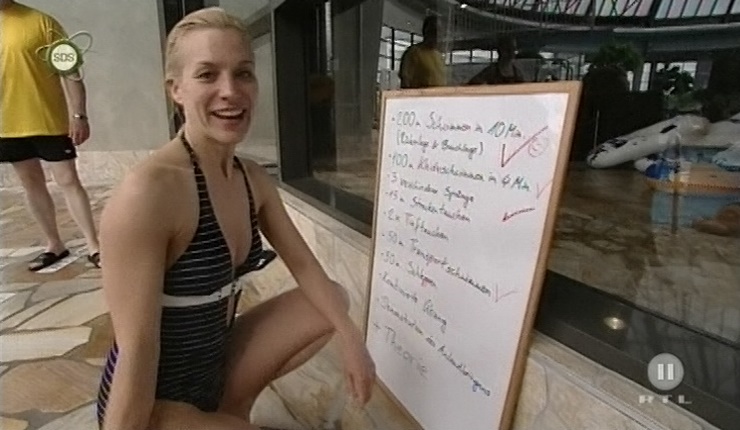 SDS
- 200m Schwimmen in 10 Min.
(Rückenlage & Bauchlage)
- 100m Kleiderschwimmen in 4 Min
- 3 verschiedene Sprünge
- 15m Streckentauchen
- 2x Tieftauchen
- 50m Transportschwimmen
- 50m Schleppen
- Kombinierte Übung
- Demonstration des Anlandbringens
+ Theorie
II
RTL